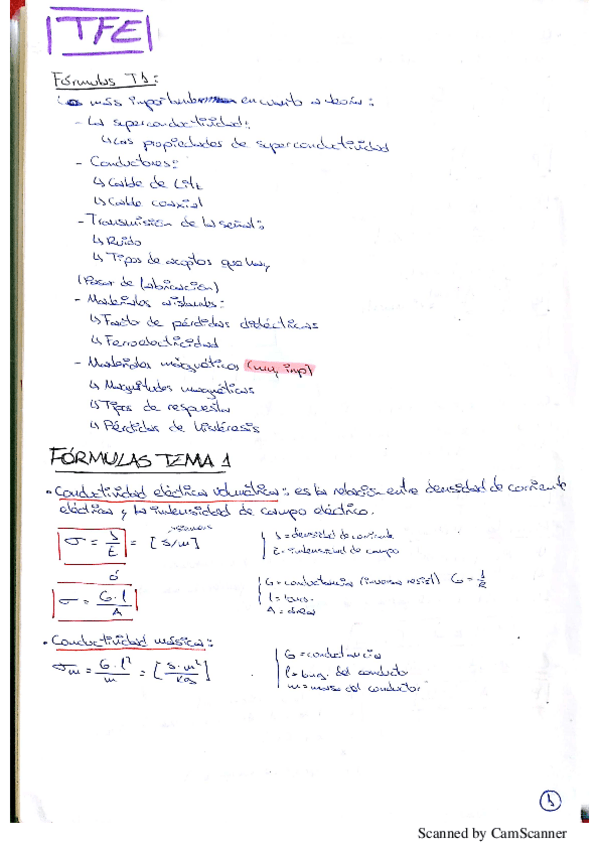 TFE
Fórmulas T1:
Los más importantes en cuanto a teoría:
- La superconductividad:
↳ Las propiedades de superconductividad
- Conductores:
↳ Cable de Litz
↳ Cable coaxial
- Transmisión de la señal:
↳ Ruido
↳ Tipos de acoplos que hay
(Pasar de fabricación)
- Materiales aislantes:
↳ Factor de pérdidas dieléctricas
↳ Ferroelectricidad
- Materiales magnéticos (muy imp)
↳ Magnitudes magnéticas
↳ Tipos de respuesta
↳ Pérdidas de histéresis
FÓRMULAS TEMA 1
• Conductividad eléctrica volumétrica: es la relación entre densidad de corriente
eléctrica y la intensidad de campo eléctrico.
σ = J/E = [S/m] siemens
J = densidad de corriente
E = intensidad de campo
ó
σ = G·l/A
G = conductancia (inversa resist) G = 1/R
l = long.
A = área
• Conductividad másica:
σm = G·l²/m = [S·m²/Kg]
G = conductancia
l = long. del conductor
m = masa del conductor
1
Scanned by CamScanner